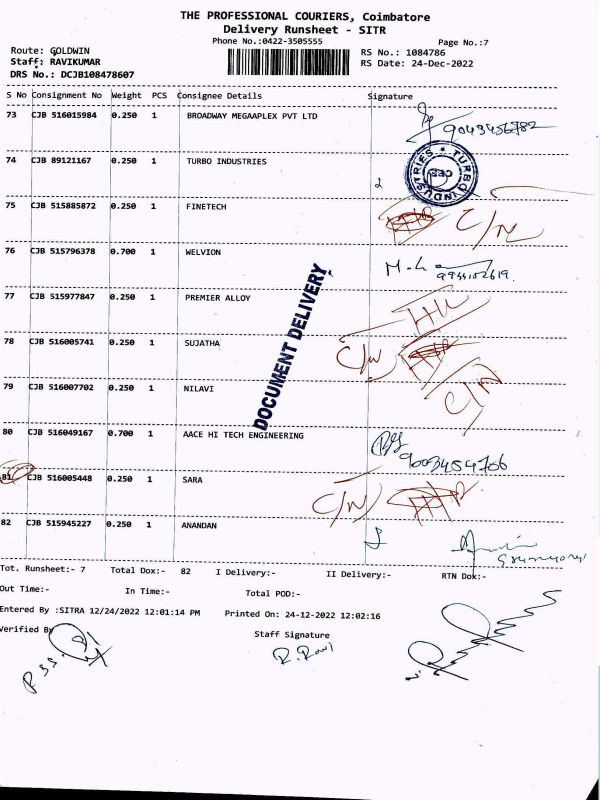 THE PROFESSIONAL COURIERS, Coimbatore
Delivery Runsheet - SITR
Phone No.:0422-3505555
Page No.:7
Route: GOLDWIN
Staff: RAVIKUMAR
DRS No.: DCJB108478607
RS No.: 1084786
RS Date: 24-Dec-2022
S No Consignment No Weight PCS Consignee Details Signature
73 CJB 516015984 0.250 1 BROADWAY MEGAAPLEX PVT LTD
9043456782
74 CJB 89121167 0.250 1 TURBO INDUSTRIES
TURBO INDUSTRIES CBE
75 CJB 515885872 0.250 1 FINETECH C/N
76 CJB 515796378 0.700 1 WELVION
77 CJB 515977847 0.250 1 PREMIER ALLOY
78 CJB 516005741 0.250 1 SUJATHA C/N
79 CJB 516007702 0.250 1 NILAVI C/N
DOCUMENT DELIVERY
80 CJB 516049167 0.700 1 AACE HI TECH ENGINEERING
9003454766
81 CJB 516005448 0.250 1 SARA C/N
82 CJB 515945227 0.250 1 ANANDAN
Tot. Runsheet:- 7 Total Dox:- 82 I Delivery:- II Delivery:- RTN Dox:-
Out Time:- In Time:- Total POD:-
Entered By :SITRA 12/24/2022 12:01:14 PM Printed On: 24-12-2022 12:02:16
Verified By
Staff Signature
R. Ravi